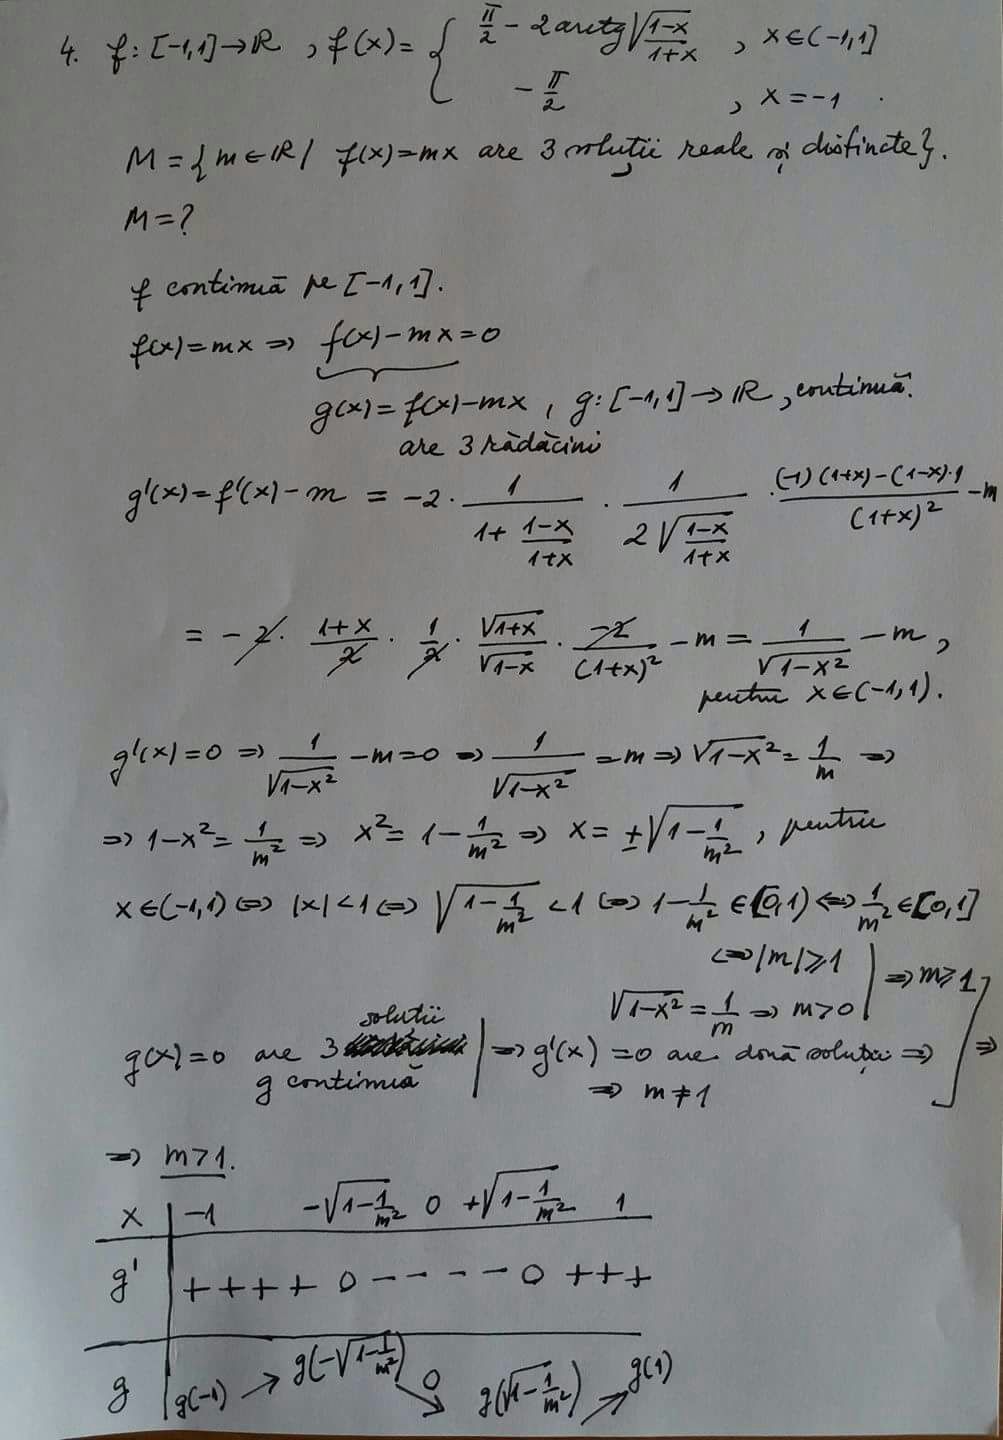 4. f: [-1,1] → ℝ, f(x) = { π/2 - 2arctg√((1-x)/(1+x)), x∈(-1,1]
-π/2, x=-1.
M = {m∈ℝ / f(x)=mx are 3 soluții reale și distincte}.
M=?
f continuă pe [-1,1].
f(x)=mx ⇒ f(x)-mx=0
g(x)=f(x)-mx, g: [-1,1] → ℝ, continuă.
are 3 rădăcini
g'(x)=f'(x)-m = -2 · 1/(1+(1-x)/(1+x)) · 1/(2√((1-x)/(1+x))) · ((-1)(1+x)-(1-x)·1)/(1+x)² - m
= -2 · (1+x)/2 · 1/2 · √(1+x)/√(1-x) · (-2)/(1+x)² - m = 1/√(1-x²) - m,
pentru x∈(-1,1).
g'(x)=0 ⇒ 1/√(1-x²) - m=0 ⇒ 1/√(1-x²) = m ⇒ √(1-x²) = 1/m ⇒
⇒ 1-x² = 1/m² ⇒ x² = 1 - 1/m² ⇒ x = ±√(1-1/m²), pentru
x∈(-1,1) ⇔ |x|<1 ⇔ √(1-1/m²) < 1 ⇔ 1-1/m² ∈ [0,1) ⇔ 1/m² ∈ [0,1]
⇔ |m|⩾1 | ⇒ m⩾1
√(1-x²) = 1/m ⇒ m>0
soluții
g(x)=0 are 3 | ⇒ g'(x)=0 are două soluții ⇒ ] ⇒
g continuă ⇒ m≠1
⇒ m>1.
x | -1 -√(1-1/m²) 0 +√(1-1/m²) 1
g' | + + + + 0 - - - - - 0 + + +
g | g(-1) ↗ g(-√(1-1/m²)) ↘ 0 g(√(1-1/m²)) ↗ g(1)